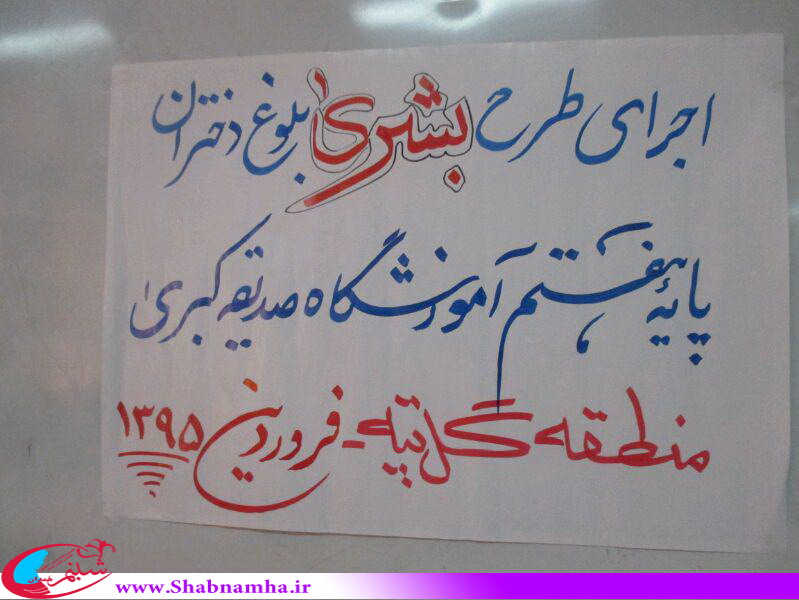 اجرای طرح بشریٰ بلوغ دختران
پایهٔ هفتم آموزشگاه صدیقه کبریٰ
منطقه گل تپه - فروردین ۱۳۹۵
شبنم همدان
www.Shabnamha.ir